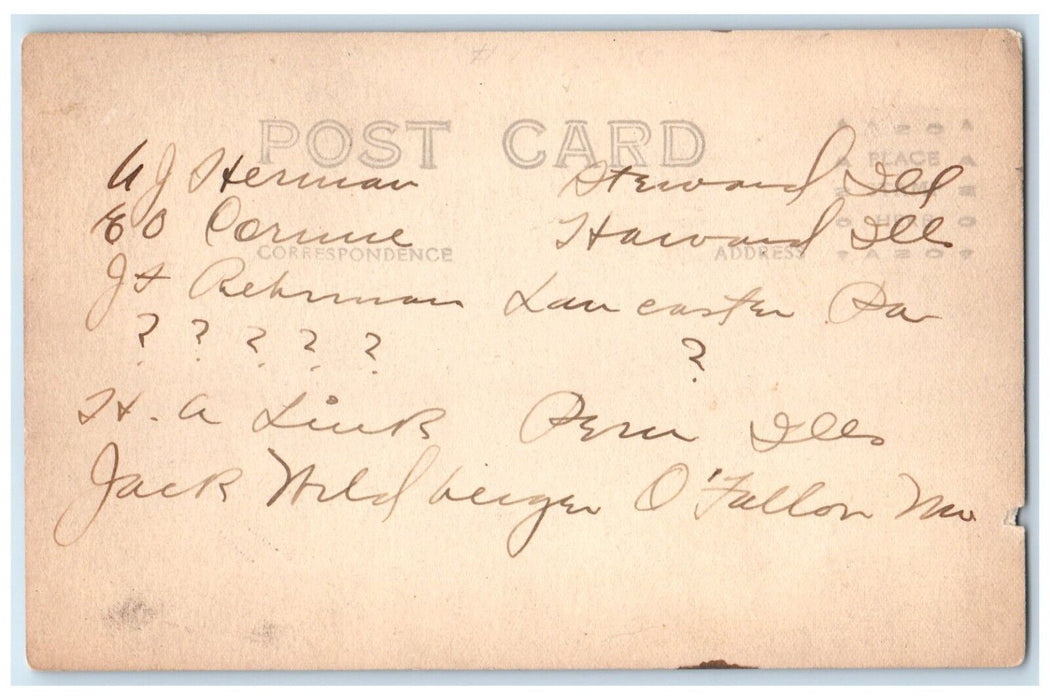 POST CARD
PLACE
HERE
A J Herman Steward Ill
E O Corune Harvard Ills
CORRESPONDENCE ADDRESS
J F Rehrman Lancaster Pa
? ? ? ? ? ?
H. A Link Peru Ills
Jack Wildberger O'Fallon Mo.